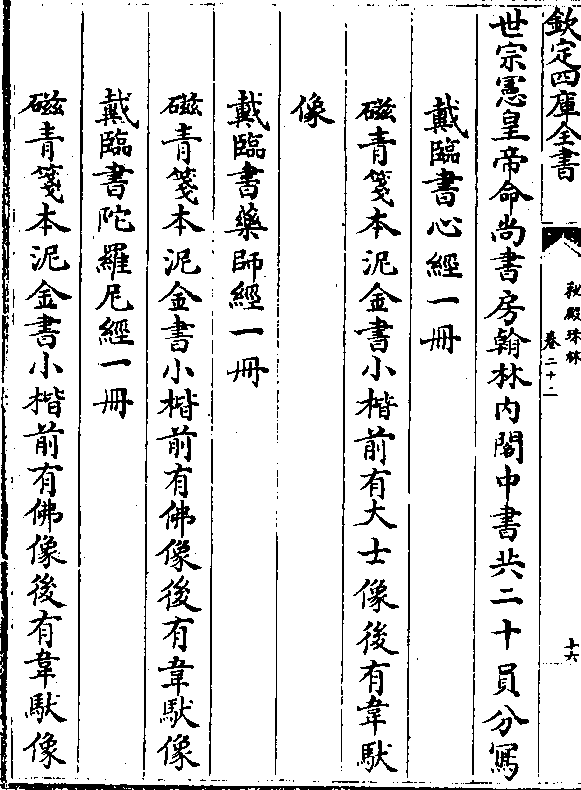 欽定四庫全書
秘殿珠林
卷二十二
十六
世宗憲皇帝命尚書房翰林內閣中書共二十員分寫
戴臨書心經一冊
磁青箋本泥金書小楷前有大士像後有韋馱
像
戴臨書藥師經一冊
磁青箋本泥金書小楷前有佛像後有韋馱像
戴臨書陀羅尼經一冊
磁青箋本泥金書小楷前有佛像後有韋馱像